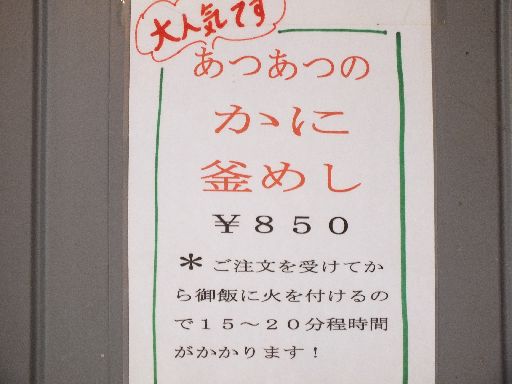 大人気です
あつあつの
かに
釜めし
￥８５０
＊ご注文を受けてか
ら御飯に火を付けるの
で１５～２０分程時間
がかかります！